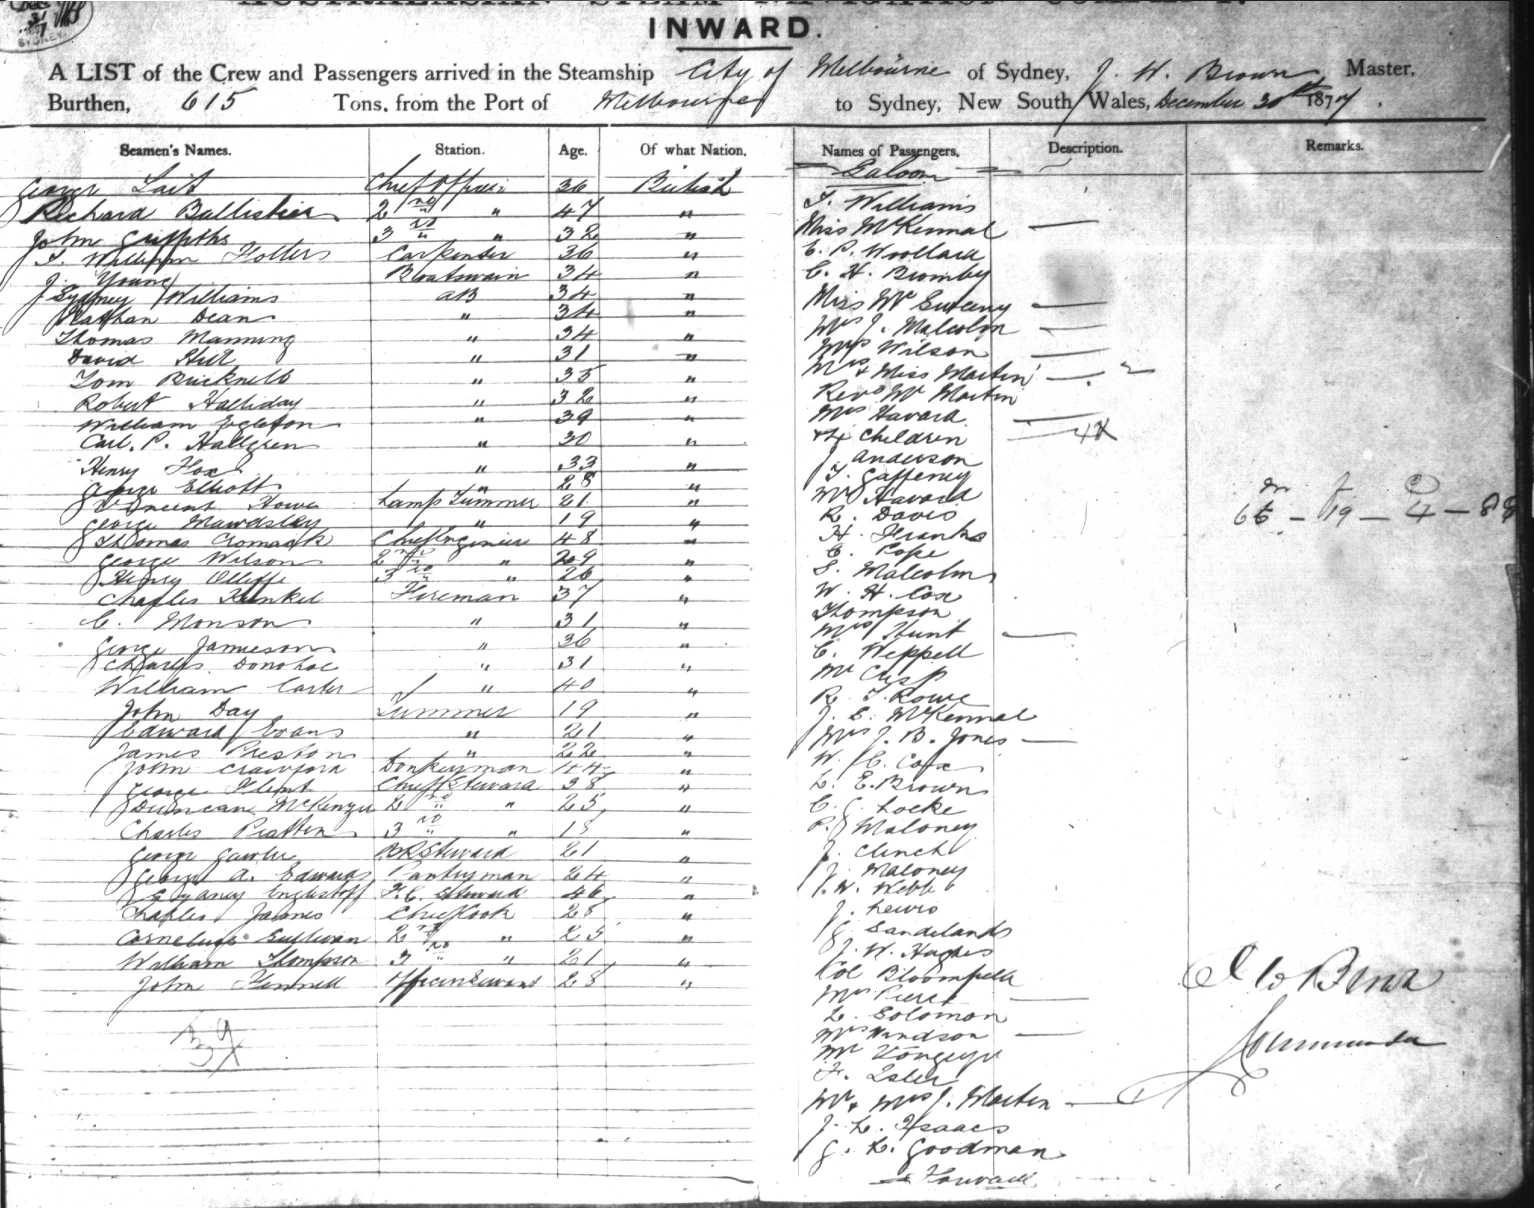 AUSTRALASIAN STEAM NAVIGATION COMPANY.
INWARD.
A LIST of the Crew and Passengers arrived in the Steamship City of Melbourne of Sydney, J. W. Brown, Master,
Burthen, 615 Tons, from the Port of Melbourne to Sydney, New South Wales, December 30th 1877.
Seamen's Names. Station. Age. Of what Nation. Names of Passengers. Description. Remarks.
George Lait Chief Officer 36 British
Richard Ballister 2nd " " 47 "
John Griffiths 3rd " " 32 "
T. William Folters Carpenter 36 "
J. Young Boatswain 34 "
Sydney Williams AB 34 "
Nathan Dean " 34 "
Thomas Manning " 34 "
David Hill " 31 "
Tom Bucknell " 35 "
Robert Halliday " 32 "
William Egleton " 39 "
Carl. P. Hallgren " 30 "
Henry Fox " 33 "
George Elliott " 28 "
Vincent Howe Lamp Trimmer 21 "
George Mawdsley " 19 "
Thomas Cromack Chief Engineer 48 "
George Wilson 2nd " " 29 "
Henry Olliffe 3rd " " 26 "
Charles Kunkel Fireman 37 "
C. Monson " 31 "
George Jamieson " 36 "
Charles Donohoe " 31 "
William Carter " 40 "
John Day Trimmer 19 "
Edward Evans " 21 "
James Preston " 22 "
John Crawford Donkeyman 44 "
George Flint Chief Steward 38 "
Duncan McKenzie 2nd " " 25 "
Charles Pratten 3rd " " 18 "
George Gawler Steward 21 "
George A. Edwards Pantryman 24 "
Sydney F.C. Steward 46 "
Charles James Chief Cook 28 "
Cornelius Sullivan 2nd " " 25 "
William Thompson 3rd " " 21 "
John Fennell Officers Servant 28 "
39
Saloon
T. Williams
Miss McKennal —
C. P. Woollard
C. H. Bromby
Miss McSweeny —
Mrs J. Malcolm —
Mrs Wilson —
Mrs & Miss Martin — 2
Revd Mr Martin
Mrs Havard —
& 4 Children — 4
J Anderson
T. Gaffeney
Mr Havard
R. Davis
H. Franks
C. Pope
S. Malcolm
W. H. Cox
Thompson
Mrs Hunt —
C. Weppell
Mr Clisp
R. T. Rowe
J. S. McKennal
Mrs J. B. Jones —
W. C. Cox
L. E. Brown
C. J Locke
P. J Maloney
J. Clinch
J. Maloney
J. W. Webb
J. Lewis
J. Sandilands
J. W. Hughes
Col Bloomfield
Mrs Pierce —
L. Solomon
Mrs Windson —
Mr
F. Isler
Mr & Mrs J. Martin —
J. L. Isaacs
G. L. Goodman
Forward
M F C
65 — 19 — 4 — 88
J W Brown
Commander